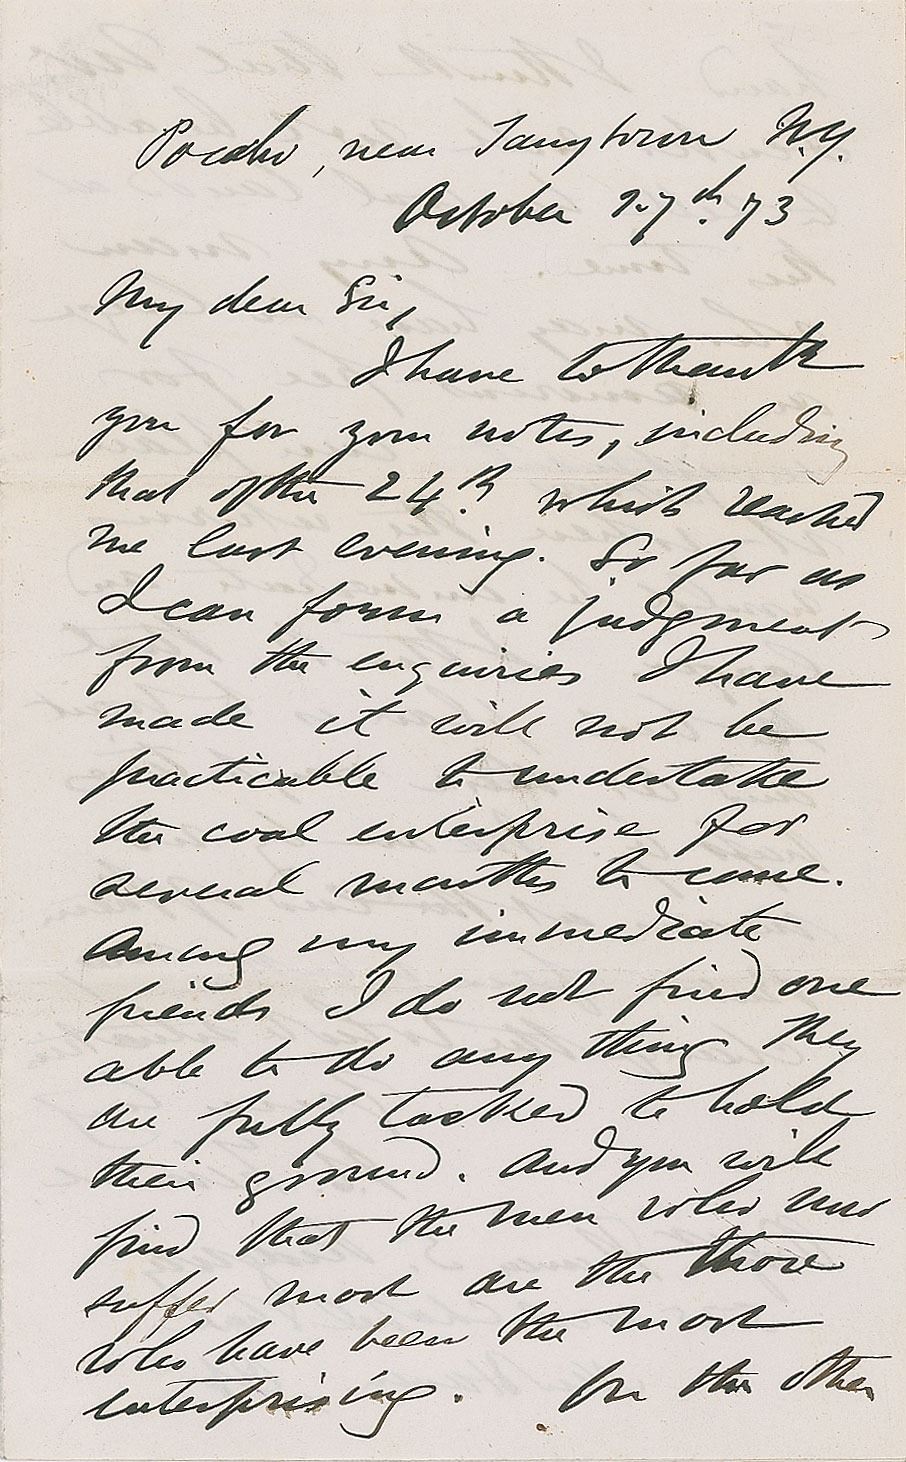 Pocaho, near Tarrytown N.Y.
October 27th. 73
My dear Sir,
I have to thank
you for your notes, including
that of the 24th. which reached
me last evening. So far as
I can form a judgment
from the enquiries I have
made it will not be
practicable to undertake
the coal enterprise for
several months to come.
Among my immediate
friends I do not find one
able to do any thing They
are fully tasked to hold
their ground. And you will
find that the men who now
suffer most are the those
who have been the most
enterprising. On the other